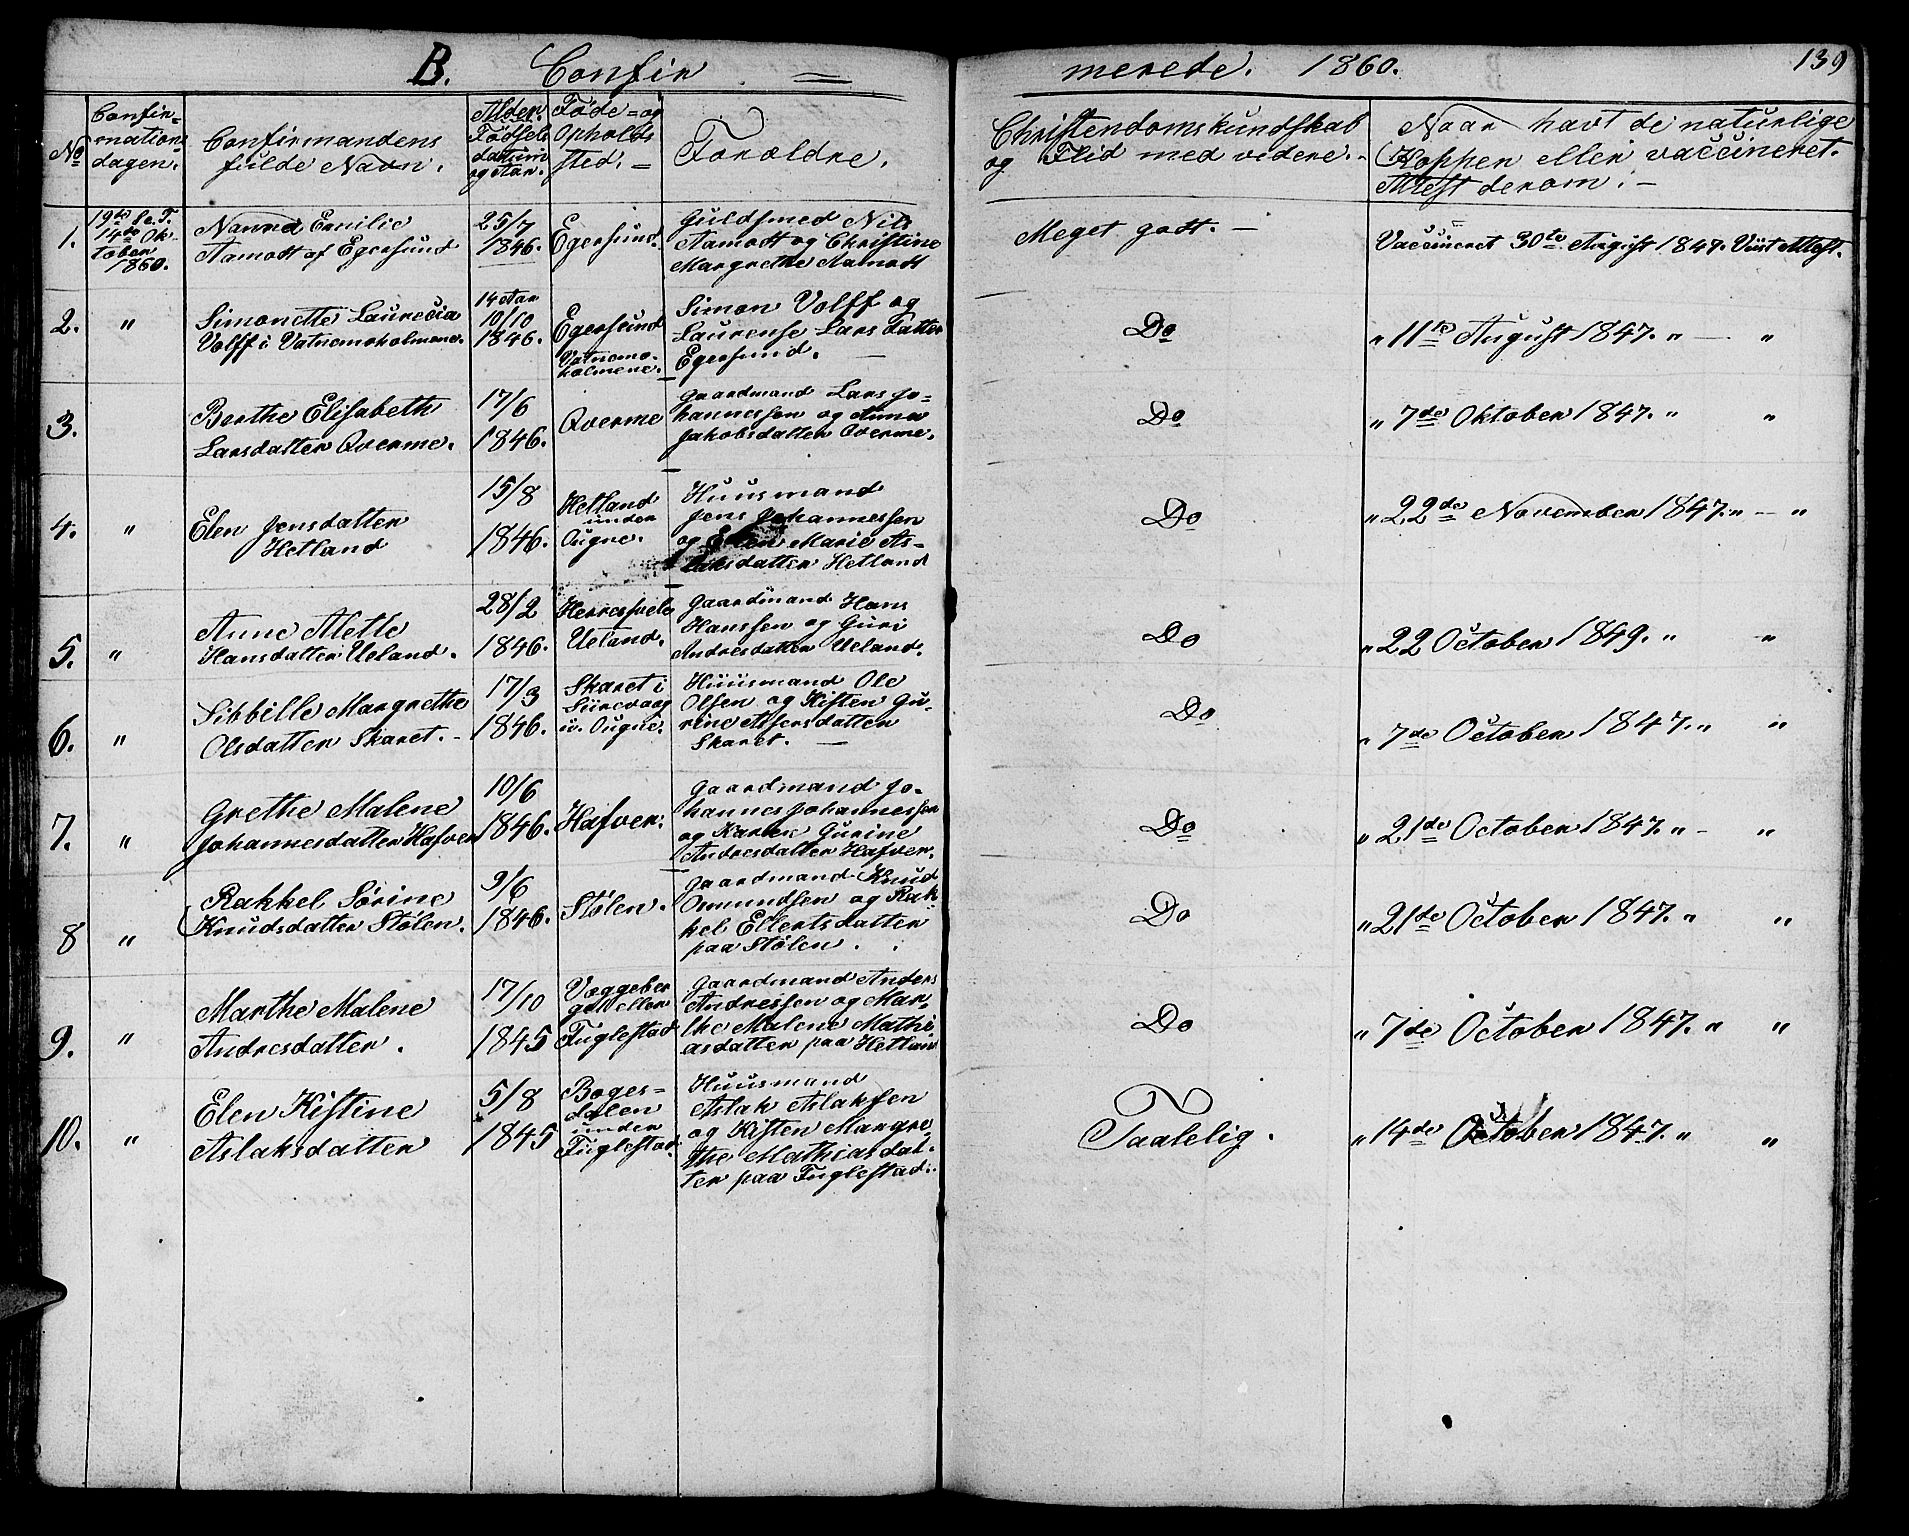 B. Confir = merede. 1860. 139
No
Confir=
mations
dagen.
Confirmandens
fulde Navn.
Alder.
Fødsels
datum
og Aar.
Føde= og
Opholds
sted. =
Forældre.
Christendomskundskab
og Flid med videre. -
Naar havt de naturlige
Kopper eller vaccineret.
Attest derom. -
1.
19de S. e. T.
14de Ok-
tober
1860.
Nanna Emilie
Aamodt af Egersund
25/7
1846.
Egersund.
Guldsmed Nils
Aamodt og Christine
Margrethe Aamodt
Meget godt. -
Vaccineret 30te August 1847. Viist Attest.
2. "
Simonette Laurecia
Volff i Vatnemoholmene.
14 Aar
10/10
1846.
Egersund
Vatnemo-
holmene.
Simon Volff og
Laurense Lars Datter
Egersund. -
Do
" 11te August 1847. " - "
3.
Berthe Elisabeth
Larsdatter Qverme.
17/6
1846.
Qverme
Gaardmand Lars Jo-
hannessen og Anna
Jakobsdatter Qverme.
Do
" 7de Oktober 1847. " "
4. "
Elen Jensdatter
Hetland
15/8
1846.
Hetland
under
Ougne.
Huusmand
Jens Johannessen
og Elen Marie As-
laksdatter Hetland
Do
" 22de November 1847. " - "
5. "
Anne Mette
Hansdatter Ueland.
28/2
1846.
Ueland.
Gaardmand Hans
Hanssen og Guri
Andresdatter Ueland.
Do
" 22 October 1849. " "
6. "
Sibbille Margrethe
Olsdatter Skaret. -
17/3
1846.
Skaret i
Siirevaag
u. Ougne.
Huusmand Ole
Olsen og Kisten Gu-
rine Assersdatter
Skaret. -
Do
" 7de October 1847. " "
7. "
Grethe Malene
Johannesdatter Hafver
10/6
1846.
Hafver.
Gaardmand Jo-
hannes Johannessen
og Karen Gurine
Andresdatter Hafver.
Do
" 21de October 1847. " - "
8 "
Rakkel Sørine
Knudsdatter Stølen.
9/6
1846.
Stølen.
Gaardmand Knud
Omundsen og Rak-
kel Ellertsdatter
paa Stølen.
Do
" 21de October 1847. " "
9. "
Marthe Malene
Andresdatter.
17/10
1845
Væggeber
get eller
Fuglestad
Gaardmand Anders
Andressen og Mar-
the Malene Mathi-
asdatter paa Hetland
Do
" 7de October 1847. " "
10. "
Elen Kistine
Aslaksdatter
5/8
1845
Boges=
dalen
under
Fuglestad.
Huusmand
Aslak Aslaksen
og Kisten Margre-
the Mathiasdat-
ter paa Fuglestad.
Taalelig.
" 14de October 1847. " "